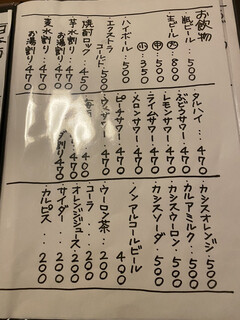 お飲物
・瓶ビール・500
・生ビール(大)・800
(中)・500
(小)・350
・ハイボール・500
・エクストラ
コールド・500
・焼酎ロック・450
芋水割り・470
お湯割り470
麦水割り・470
お湯割り470
・タルハイ・・・470
・ぶどうサワー・470
・レモンサワー・470
・ライムサワー・470
・メロンサワー・470
・ピーチサワー・470
・ウメサワー・470
・カシスオレンジ・500
・カルアミルク・500
・カシスウーロン・500
・カシスソーダ・500
・ノンアルコールビール
400
・ウーロン茶・200
・コーラ・・200
・オレンジジュース・200
・サイダー・200
・カルピス・200